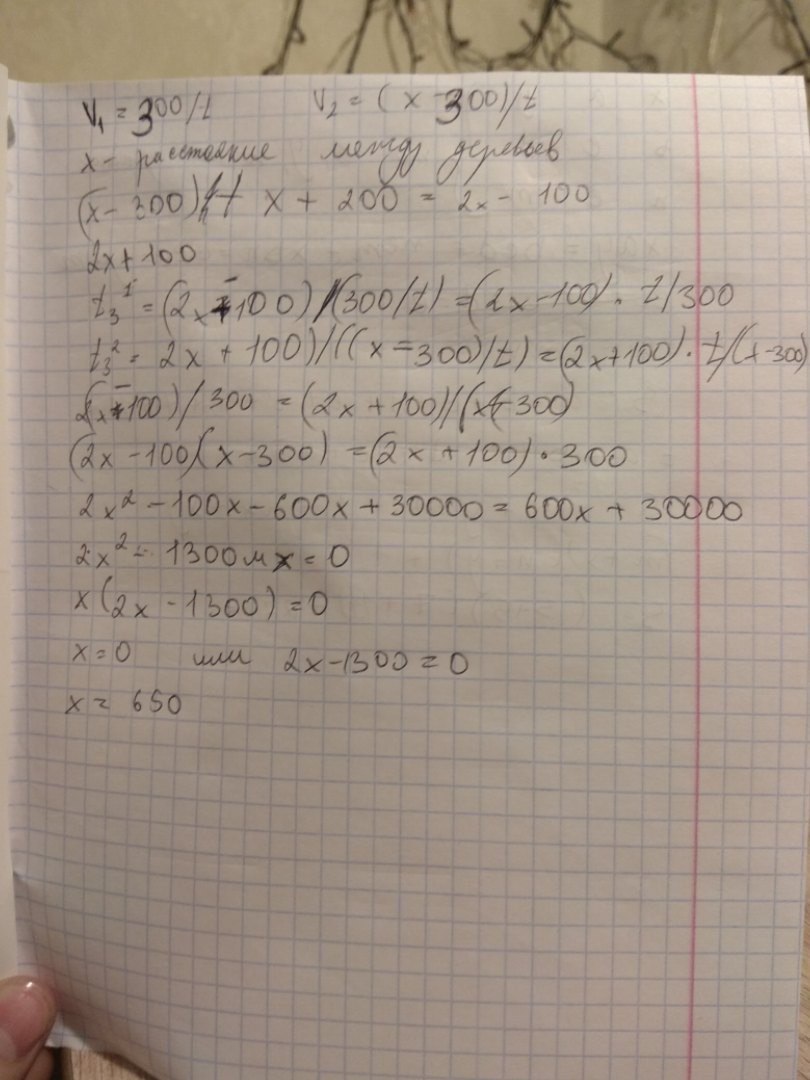 V₁ = 300/t V₂ = (x - 300)/t
x - расстояние между деревьев
(x - 300) x + 200 = 2x - 100
2x + 100
t₃¹ = (2x - 100)/(300/t) = (2x - 100) · t/300
t₃² = 2x + 100)/((x - 300)/t) = (2x + 100) · t/(x - 300)
(2x - 100)/300 = (2x + 100)/(x - 300)
(2x - 100)(x - 300) = (2x + 100) · 300
2x² - 100x - 600x + 30000 = 600x + 30000
2x² - 1300x = 0
x(2x - 1300) = 0
x = 0 или 2x - 1300 = 0
x = 650